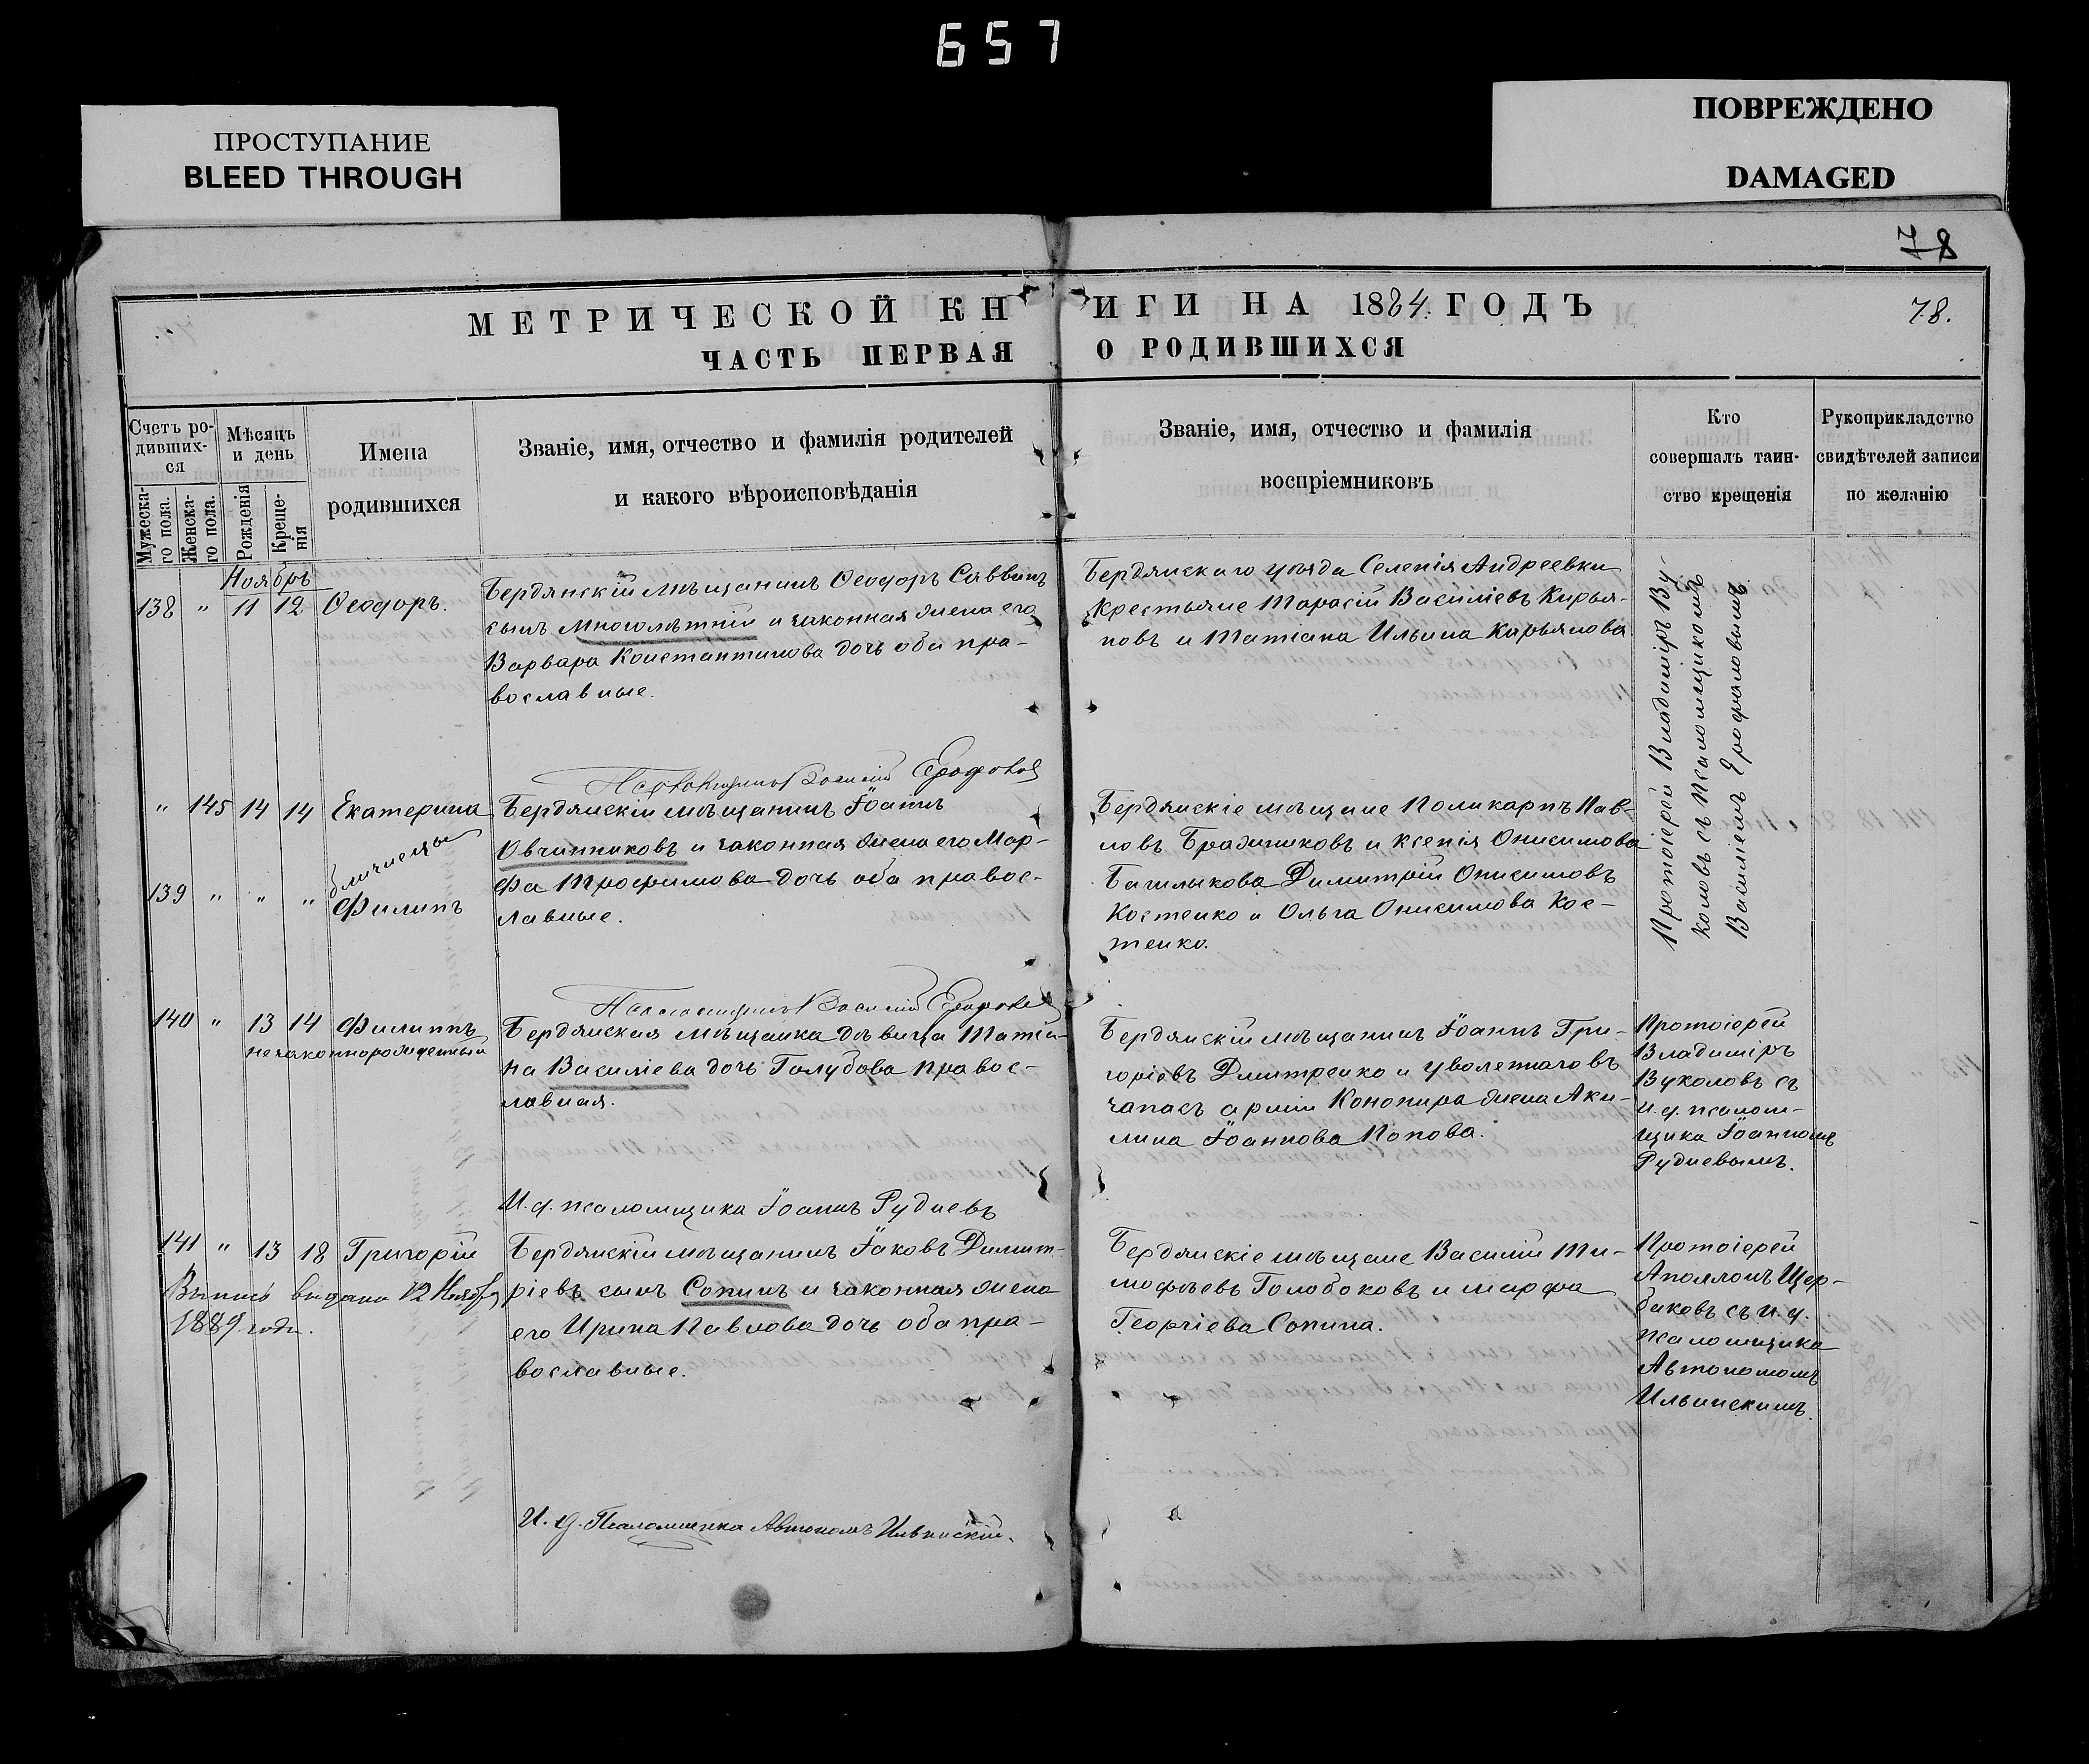 657
ПРОСТУПАНИЕ
BLEED THROUGH
ПОВРЕЖДЕНО
DAMAGED
78
МЕТРИЧЕСКОЙ КНИГИ НА 1884 ГОДЪ
78.
ЧАСТЬ ПЕРВАЯ О РОДИВШИХСЯ
Счетъ ро-
дивших-
ся
Мужеска-
го пола.
Женска-
го пола.
Мѣсяцъ
и день
Рожденія
Креще-
нія
Имена
родившихся
Званіе, имя, отчество и фамилія родителей
и какого вѣроисповѣданія
Званіе, имя, отчество и фамилія
воспріемниковъ
Кто
совершалъ таин-
ство крещенія
Рукоприкладство
свидѣтелей записи
по желанію
Ноябрь
138 " 11 12 Ѳеодоръ.
Бердянскій мѣщанинъ Ѳеодоръ Саввинъ
сынъ Многолѣтній и законная жена его
Варвара Константинова дочь оба пра-
вославные.
Бердянскаго уѣзда Селенія Андреевки
Крестьяне Тарасій Василіевъ Кирья-
новъ и Татіана Ильина Кирьянова.
Протоіерей Владиміръ Ву-
коловъ съ псаломщикомъ
Василіемъ Ерофаловымъ
Псаломщикъ Василій
" 145 14 14 Екатерина
близнецы
139 " " " Филипъ
Бердянскій мѣщанинъ Іоаннъ
Овчинниковъ и законная жена его Мар-
фа Трофимова дочь оба правос-
лавные.
Бердянскіе мѣщане Поликарпъ Пав-
ловъ Бражниковъ и Ксенія Онисимова
Димитрій Онисимовъ
Костенко и Ольга Онисимова Кос-
тенко.
Псаломщикъ Василій
140 " 13 14 Филиппъ
незаконнорожденный
Бердянская мѣщанка дѣвица Татіа-
на Василіева дочь Голубова правос-
лавная.
Бердянскій мѣщанинъ Іоаннъ Гри-
горіевъ Дмитренко и уволеннаго въ
запасъ арміи Канонира жена Аки-
лина Іоаннова Попова.
Протоіерей
Владиміръ
Вуколовъ съ
и. д. псалом-
щика Іоанномъ
Рудневымъ.
И. д. псаломщика Іоаннъ Рудневъ
141 " 13 18 Григорій
Выпись выдана 12 Ноября
1889 года.
Бердянскій мѣщанинъ Іаковъ Димит-
ріевъ сынъ Сопинъ и законная жена
его Ирина Павлова дочь оба пра-
вославные.
Бердянскіе мѣщане Василій Ти-
мофѣевъ Голобоковъ и Марфа
Георгіева Сопина.
Протоіерей
Аполлонъ Щер-
баковъ съ и. д.
псаломщика
Автономомъ
Ильинскимъ.
И. д. Псаломщика Автономъ Ильинскій.